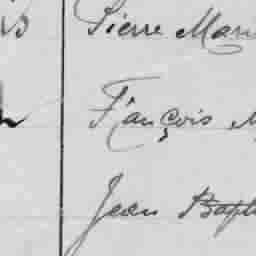 Pierre Mari
François M
Jean Bapt